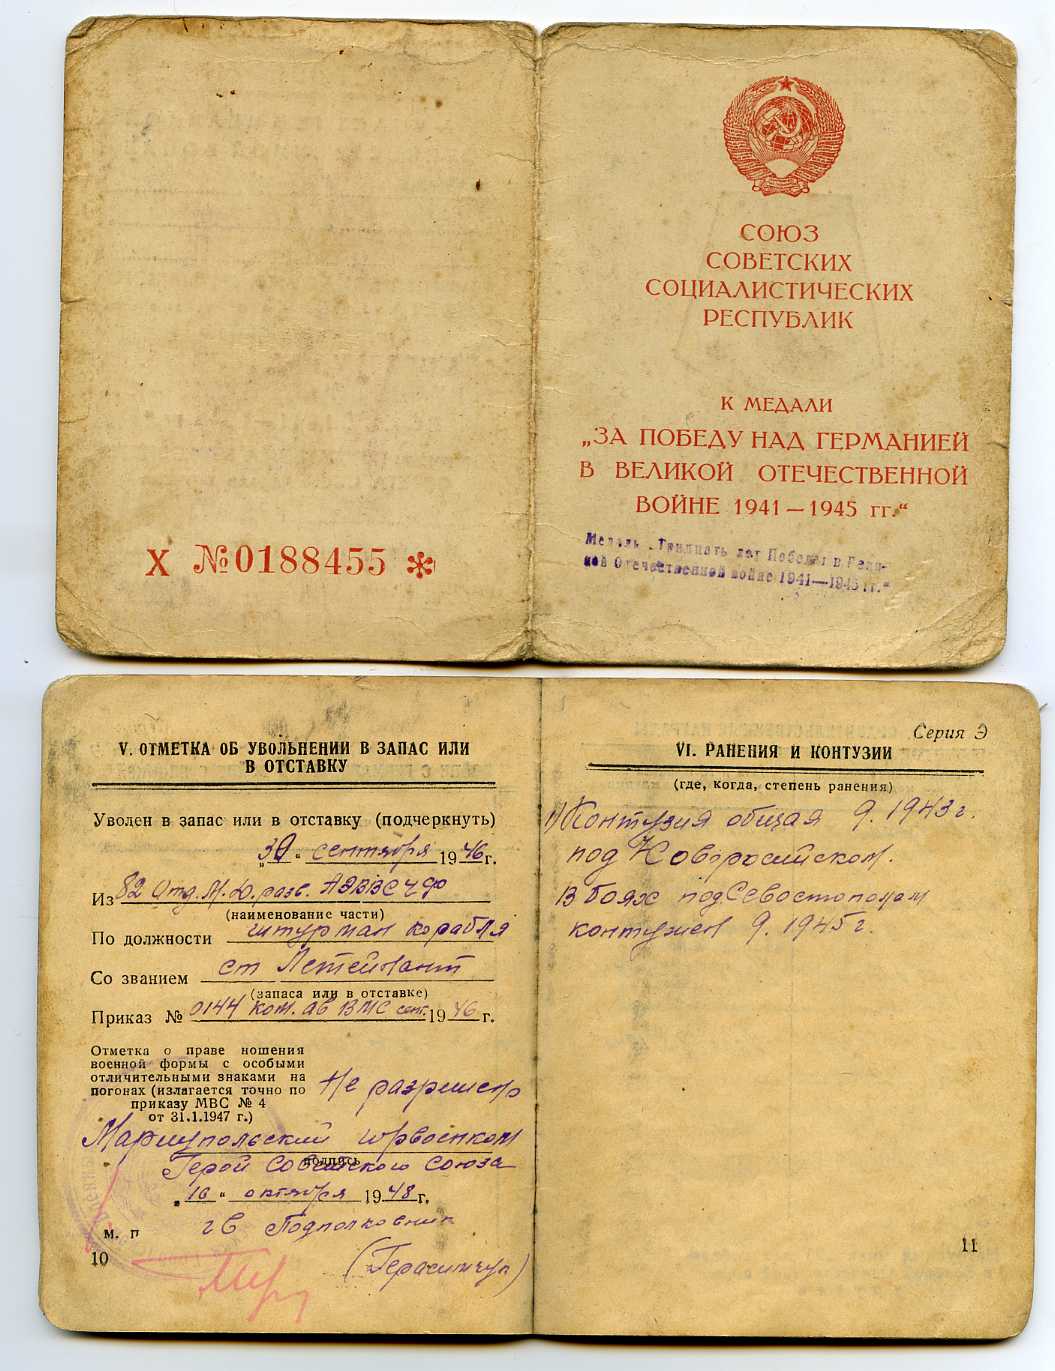 СОЮЗ
СОВЕТСКИХ
СОЦИАЛИСТИЧЕСКИХ
РЕСПУБЛИК
К МЕДАЛИ
„ЗА ПОБЕДУ НАД ГЕРМАНИЕЙ
В ВЕЛИКОЙ ОТЕЧЕСТВЕННОЙ
ВОЙНЕ 1941—1945 гг.“
Медаль „Тридцать лет Победы в Вели-
кой Отечественной войне 1941—1945 гг.“
Х №0188455 *
V. ОТМЕТКА ОБ УВОЛЬНЕНИИ В ЗАПАС ИЛИ
В ОТСТАВКУ
Уволен в запас или в отставку (подчеркнуть)
„30“ сентября 1946 г.
Из 82 Отд. М. Д. разв. АЭ ВВС ЧФ
(наименование части)
По должности штурман корабля
Со званием ст Летейнант
(запаса или в отставке)
Приказ № 0144 ком. ав ВМС сент. 1946 г.
Отметка о праве ношения
военной формы с особыми
отличительными знаками на
погонах (излагается точно по
приказу МВС № 4
от 31.1.1947 г.)
Не разрешено
Мариупольский горвоенком
подпись
Герой Советского Союза
„16“ октября 1948 г.
м. п
гв Подполковник
10
Серия Э
VI. РАНЕНИЯ И КОНТУЗИИ
(где, когда, степень ранения)
1) Контузия общая 9. 1943 г.
под Новоросийском.
В боях под Севостополем
контужен 9. 1945 г.
11